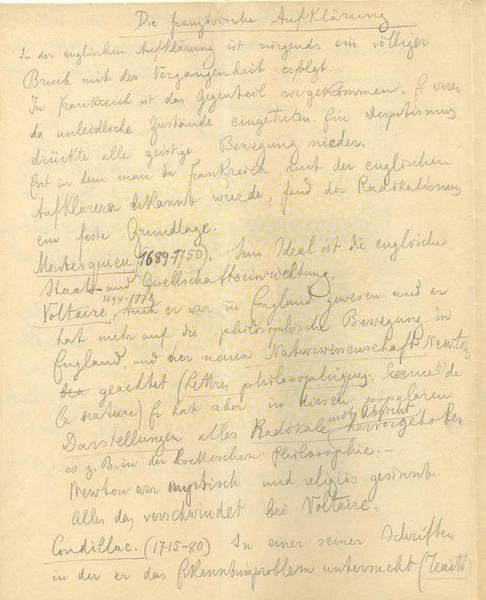 Die französische Aufklärung
In der englischen Aufklärung ist nirgends ein völliger
Bruch mit der Vergangenheit erfolgt.
In Frankreich ist das Gegenteil vorgekommen. Es waren
da unleidliche Zustände eingetreten. Ein Despotismus
drückte alle geistige Bewegung nieder.
Erst in dem man in Frankreich mit der englischen
Aufklärern bekannt wurde, fand der Radikalismus
ein feste Grundlage.
Montesquieu (1689-1750). Sein Ideal ist die engliche
Staat- und Gesellschaftseinrichtung.
1694-1778
Voltaire, Auch er war in England gewesen und er
hat mehr auf die philosophische Bewegung in
England, und der neuen Naturwissenschaft Newton
geachtet (Lettres philosophiques. de
la nature) Er hat aber in diesen populären
mit Absicht
Darstellungen alles Radikale hervorgehoben
so z.B. in der Lockeschen Philosophie.-
Newton war mystisch und religiös gesinnt.
Alles das verschwindet bei Voltaire.
Condillac. (1715-80) In einer seiner Schriften
in der er das Erkenntnisproblem untersucht (Traité